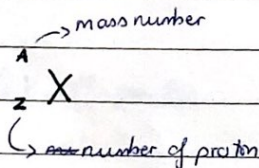 mass number
A
X
Z
number of proton